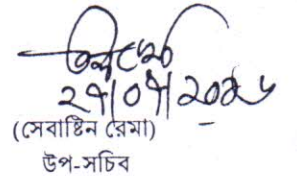 ২৭/০৭/২০২৬
(সেবাষ্টিন রেমা)
উপ-সচিব